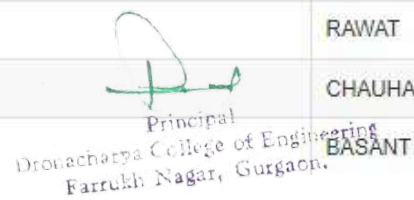 RAWAT
CHAUHA
Principal
Dronacharya College of Engineering
BASANT
Farrukh Nagar, Gurgaon.